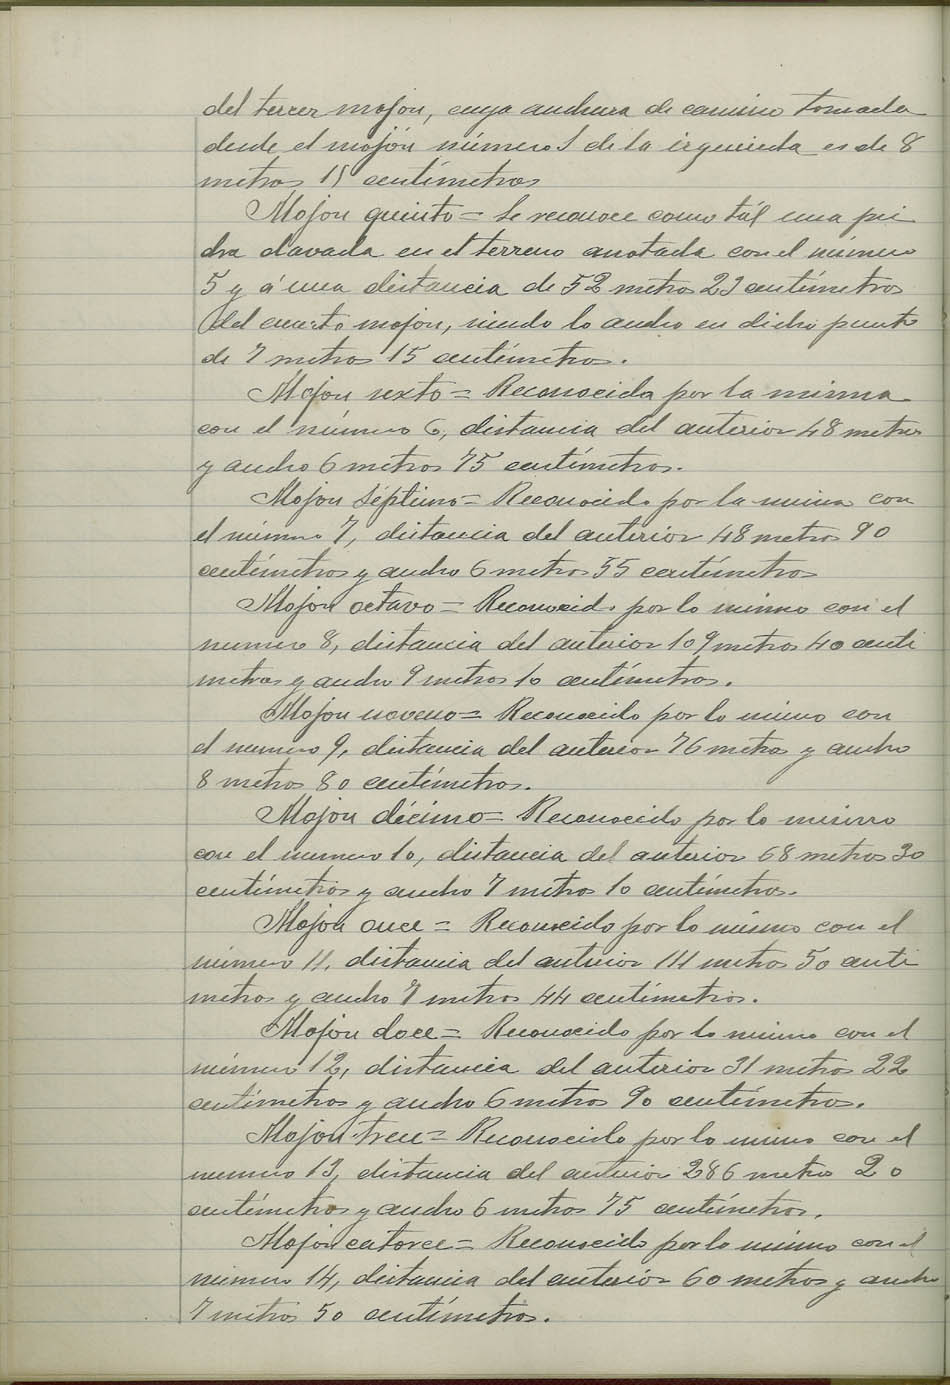 del tercer mojon, cuya anchura de camino tomada
desde el mojón número 1 de la izquierda es de 8
metros 15 centímetros
Mojon quinto = Se reconoce como tál una pie
dra clavada en el terreno anotada con el número
5 y á una distancia de 52 metros 23 centímetros
del cuarto mojon, siendo lo ancho en dicho punto
de 7 metros 15 centímetros.
Mojon sexto = Reconocida por la misma
con el número 6, distancia del anterior 48 metros
y ancho 6 metros 75 centímetros.
Mojon séptimo = Reconocido por la misma con
el número 7, distancia del anterior 48 metros 90
centímetros y ancho 6 metros 55 centímetros
Mojon octavo = Reconocido por lo mismo con el
numero 8, distancia del anterior 109 metros 40 centi
metros y ancho 9 metros 10 centímetros.
Mojon noveno = Reconocido por lo mismo con
el numero 9, distancia del anterior 76 metros y ancho
8 metros 80 centímetros.
Mojon décimo = Reconocido por lo mismo
con el numero 10, distancia del anterior 68 metros 30
centímetros y ancho 7 metros 10 centímetros.
Mojon once = Reconocido por lo mismo con el
número 11, distancia del anterior 111 metros 50 centi
metros y ancho 7 metros 44 centímetros.
Mojon doce = Reconocido por lo mismo con el
número 12, distancia del anterior 31 metros 22
centímetros y ancho 6 metros 90 centímetros.
Mojon trece = Reconocido por lo mismo con el
numero 13, distancia del anterior 286 metros 20
centímetros y ancho 6 metros 75 centímetros.
Mojon catorce = Reconocido por lo mismo con el
número 14, distancia del anterior 60 metros y ancho
7 metros 50 centímetros.